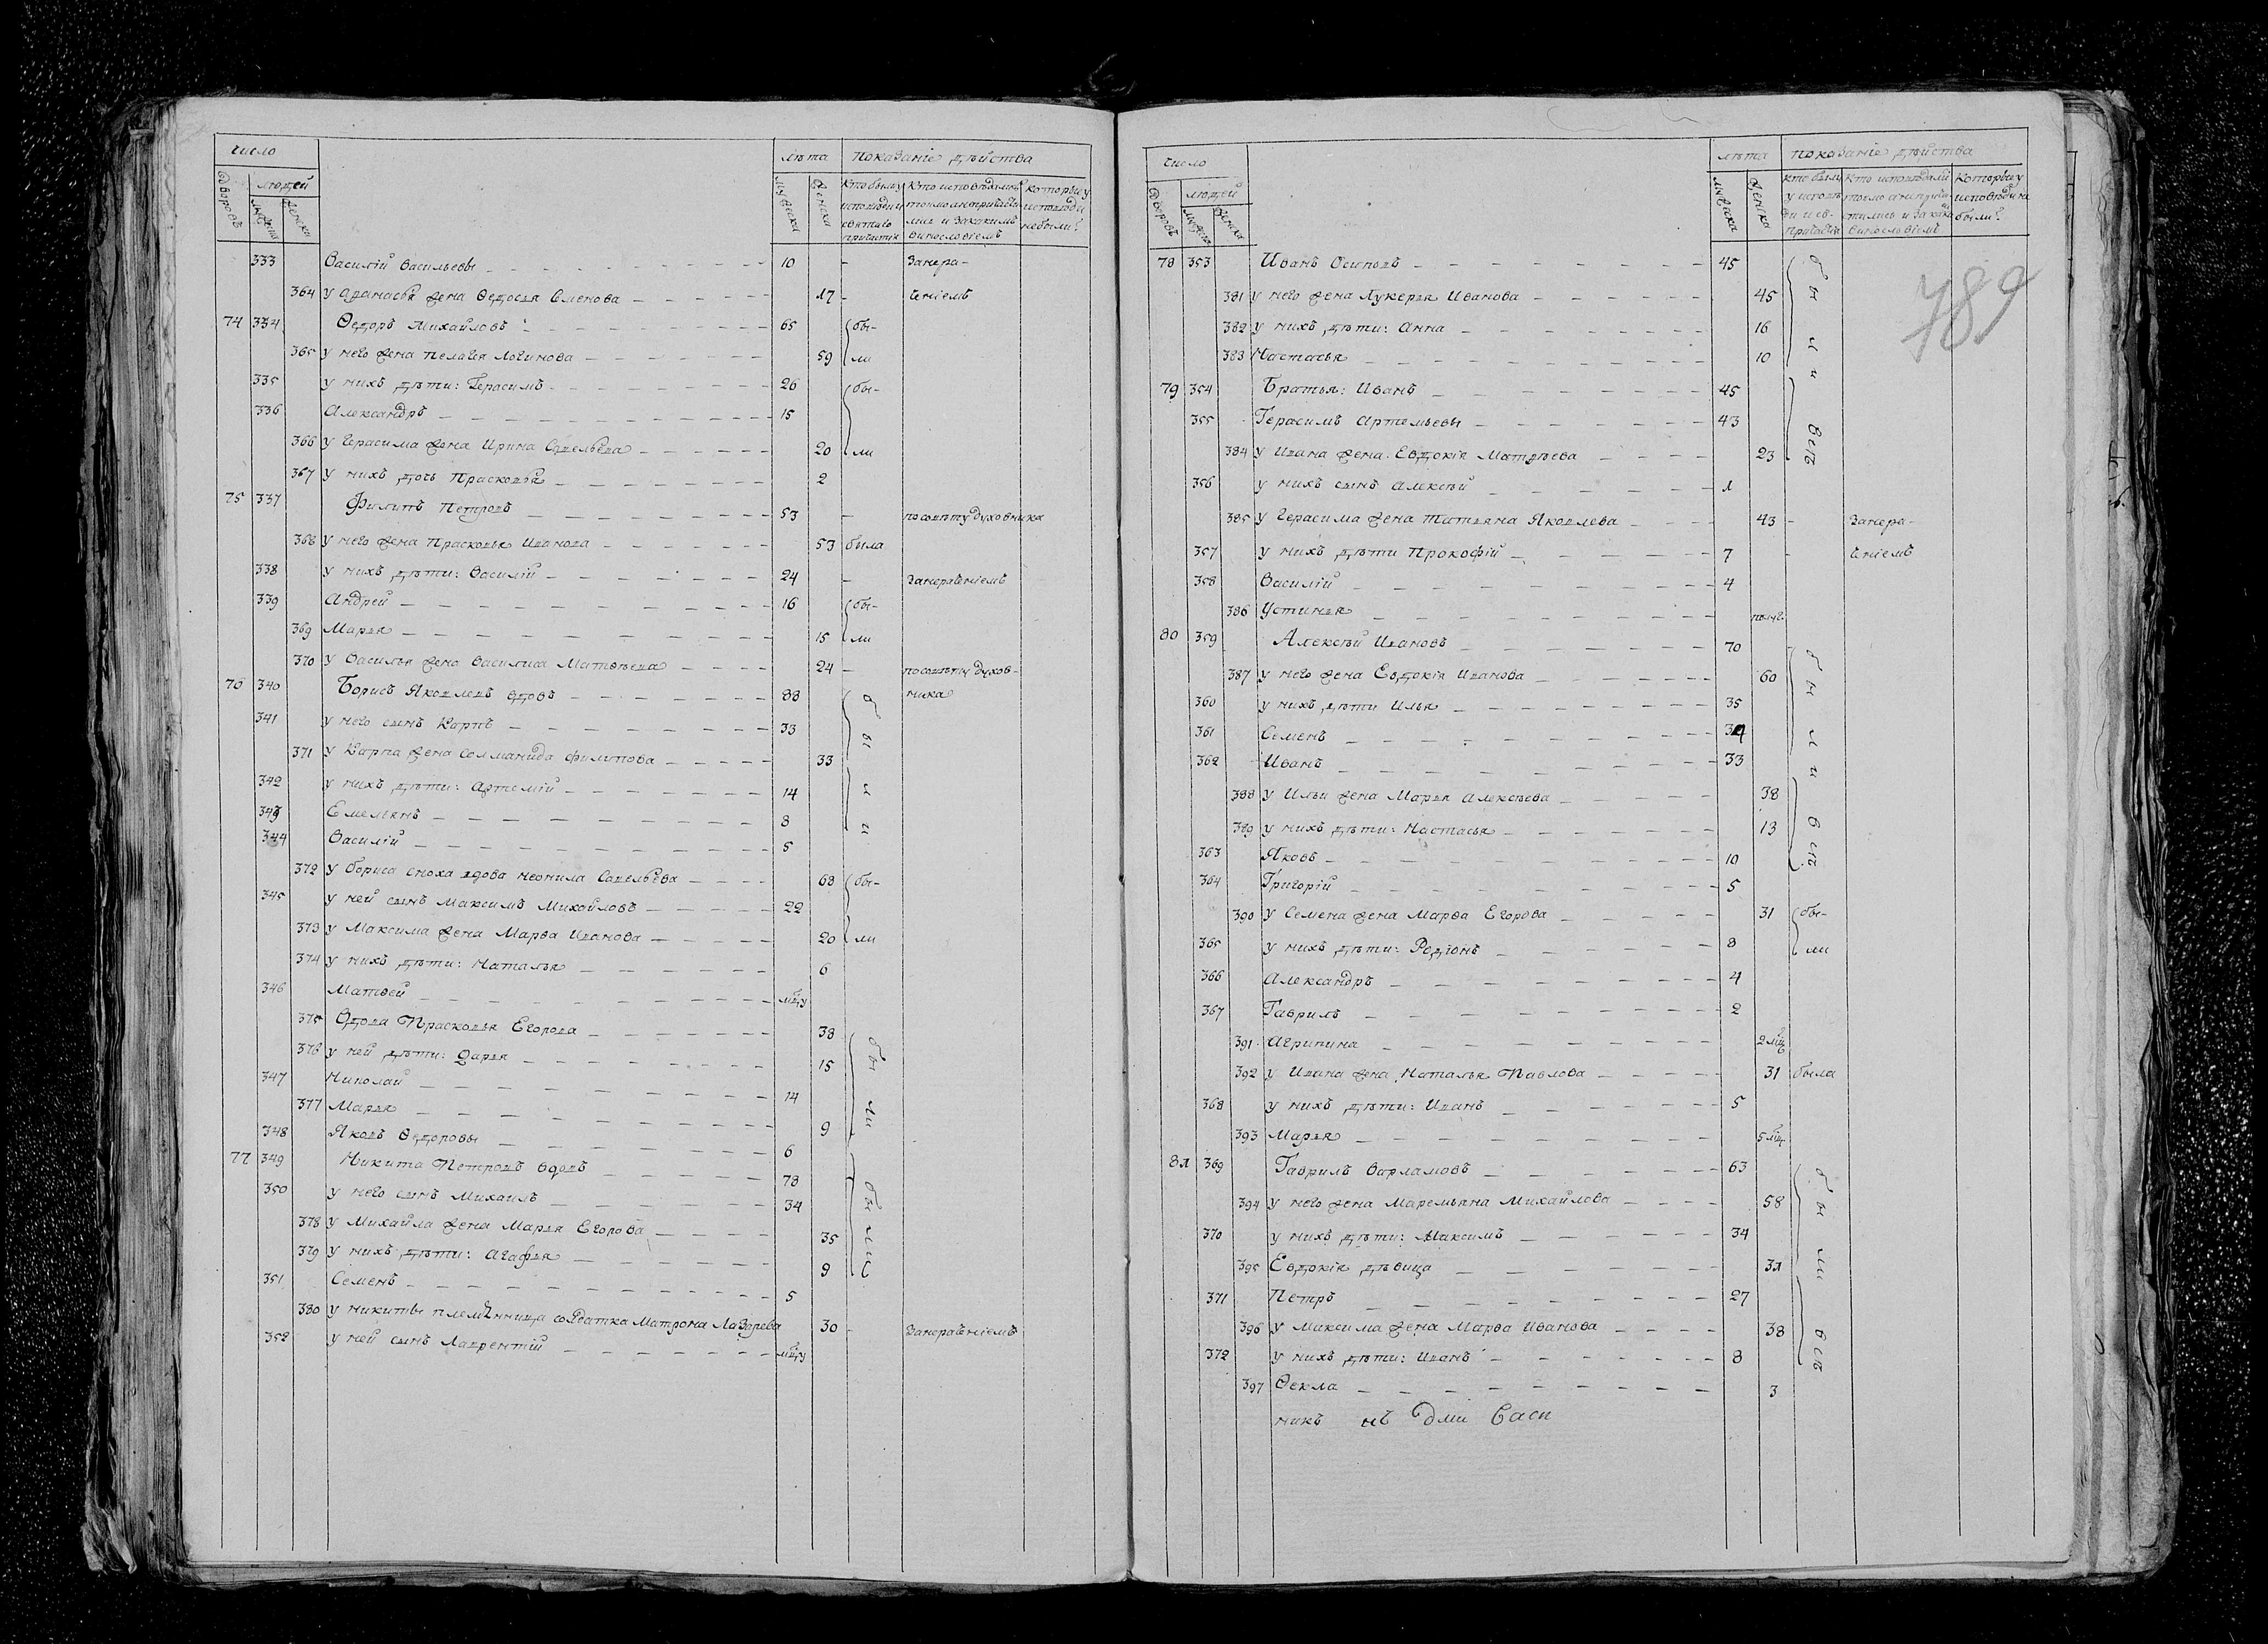 число
лѣта показаніе дѣйства
дворовъ
людей
мужеска
женска
мужеска
женска
кто были у исповѣди и святаго причастія
кто исповѣдались токмо а не причастились и за какимъ винословіемъ
которые у исповѣди не были
333 Василій Васильевы 10 - Занера-
364 у Афанасья жена Ѳедосья Семенова 17 - ченіемъ
74 334 Ѳедоръ Михайловъ 65 бы-
365 у него жена Пелагея Логинова 59 ли
335 у нихъ дѣти: Герасимъ 26 бы-
336 Александръ 15
366 у Герасима жена Ирина Савельева 20 ли
367 у нихъ дочь Прасковья 2
75 337 Филипъ Петровъ 53 - по совѣту духовника
368 у него жена Прасковья Иванова 53 была
338 у нихъ дѣти: Василій 24 - Занераченіемъ
339 Андрей 16 бы-
369 Марья 15 ли
370 у Василья жена Василиса Матвѣева 24 - по совѣту духов-
76 340 Борисъ Яковлевъ вдовъ 88 ника
341 у него сынъ Карпъ 33 были
371 у Карпа жена Соломанида Филипова 33
342 у нихъ дѣти: Артемій 14
343 Емельянъ 8
344 Василій 5
372 у Бориса сноха вдова Неонила Савельева 68 бы-
345 у ней сынъ Максимъ Михайловъ 22
373 у Максима жена Марѳа Иванова 20 ли
374 у нихъ дѣти: Наталья 6
346 Матвей мцу
375 Вдова Прасковья Егорова 38
376 у ней дѣти: Дарья 15 были
347 Николай 14
377 Марья 9
348 Яковъ Ѳедоровы 6
77 349 Никита Петровъ вдовъ 78
350 у него сынъ Михаилъ 34 были
378 у Михайла жена Марья Егорова 35
379 у нихъ дѣти: Агафья 9
351 Семенъ 5
380 у никиты племянница солдатка Матрона Лазарева 30 - Занераченіемъ
352 у ней сынъ Лаврентій мцу
789
число
лѣта показаніе дѣйства
дворовъ
людей
мужеска
женска
мужеска
женска
кто были у исповѣди и св. причастія
кто исповѣдались токмо а не причастились и за какимъ винословіемъ
которые у исповѣди не были
78 353 Иванъ Осиповъ 45 были
381 у него жена Лукерья Иванова 45
382 у нихъ дѣти: Анна 16
383 Настасья 10
79 354 Братья: Иванъ 45
355 Герасимъ Артемьевы 43 всѣ
384 у Ивана жена Евдокія Матвѣева 23
356 у нихъ сынъ Алексѣй 1
385 у Герасима жена Татьяна Яковлева 43 - Занера-
357 у нихъ дѣти Прокофій 7 - ченіемъ
358 Василій 4
386 Устинья полуг.
80 359 Алексѣй Ивановъ 70
387 у него жена Евдокія Иванова 60 были
360 у нихъ дѣти Илья 35
361 Семенъ 34
362 Иванъ 33
388 у Ильи жена Марья Алексѣева 38
389 у нихъ дѣти: Настасья 13 всѣ
363 Яковъ 10
364 Григорій 5
390 у Семена жена Марѳа Егорова 31 бы-
365 у нихъ дѣти: Редіонъ 8 ли
366 Александръ 4
367 Гаврилъ 2
391 Агрипина 2 мц
392 у Ивана жена Наталья Павлова 31 была
368 у нихъ дѣти: Иванъ 5
393 Марья 5 мц
81 369 Гаврилъ Варламовъ 63
394 у него жена Маремьяна Михайлова 58 были
370 у нихъ дѣти: Максимъ 34
395 Евдокія дѣвица 31
371 Петръ 27
396 у Максима жена Марѳа Иванова 38 всѣ
372 у нихъ дѣти: Иванъ 8
397 Ѳекла 3